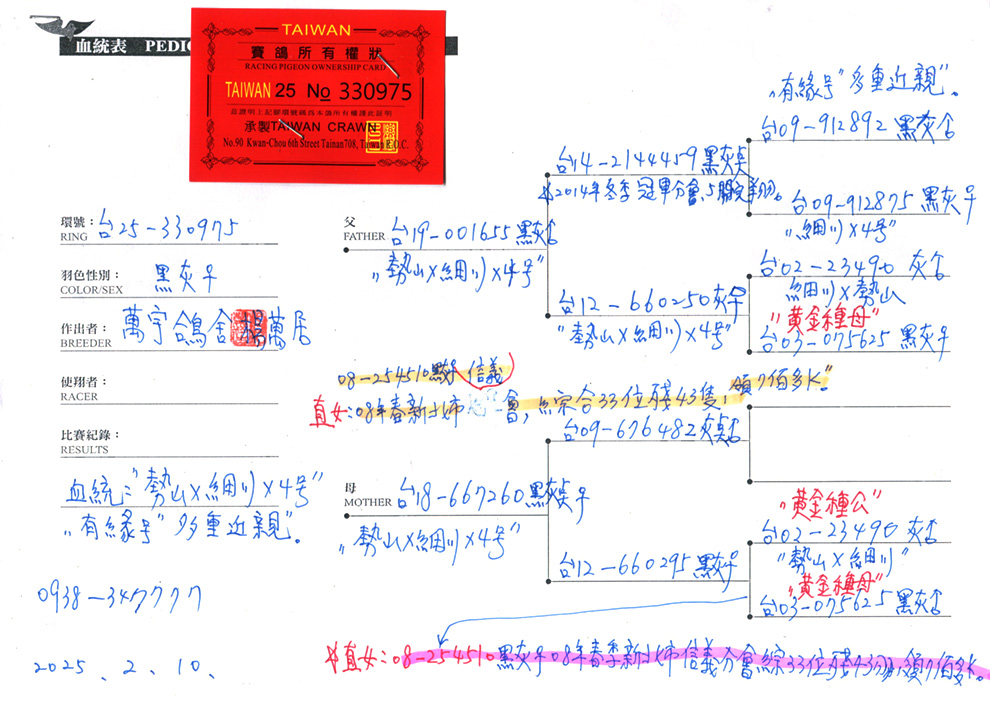 血統表 PEDI
TAIWAN
賽鴿所有權狀
RACING PIGEON OWNERSHIP CARD
TAIWAN 25 No 330975
茲證明上記腳環號碼為本鴿所有權謹此証明
承製TAIWAN CRAWN
No.90 Kwan-Chou 6th Street Tainan708, Taiwan R.O.C.
環號：
RING
台25-330975
羽色性別：
COLOR/SEX
黑灰♀
作出者：
BREEDER
萬宇鴿舍 楊萬居
使翔者：
RACER
比賽紀錄：
RESULTS
血統："勢山×細川×4号"
"有緣号"多重近親"。
0938-347777
2025、2、10、
父
FATHER
台19-001655 黑灰♂
"勢山×細川×4号"
母
MOTHER
台18-667260 黑灰♀
"勢山×細川×4号"
台14-2144459 黑灰
2014年冬季冠軍分會,5關
台12-660250 灰♀
"勢山×細川×4号"
08-254510 信義
直女:08年春新北市 會,綜合33位殘43隻,領7佰多K"
台09-676482 灰
台12-660295 黑灰♀
"有緣号"多重近親"。
台09-912892 黑灰♂
台09-912875 黑灰♀
"細川×4号"
台02-23490 灰♂
細川×勢山
"黃金種母"
台03-075625 黑灰♀
"黃金種公"
台02-23490 灰♂
"勢山×細川"
"黃金種母"
台03-075625 黑灰♂
直女:08-254510 黑灰♀08年春季新北市信義分會綜33位殘43羽,領7佰多K。